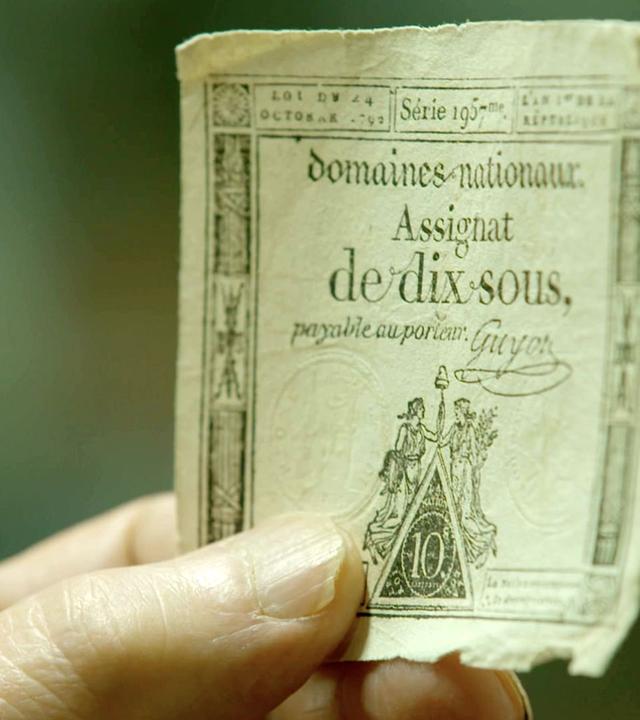 LOI DU 24
OCTOBRE 1792
Série 1957me.
L'AN 1er DE LA
RÉPUBLIQUE
Domaines nationaux.
Assignat
de dix sous,
payable au porteur.
Guyon
10.